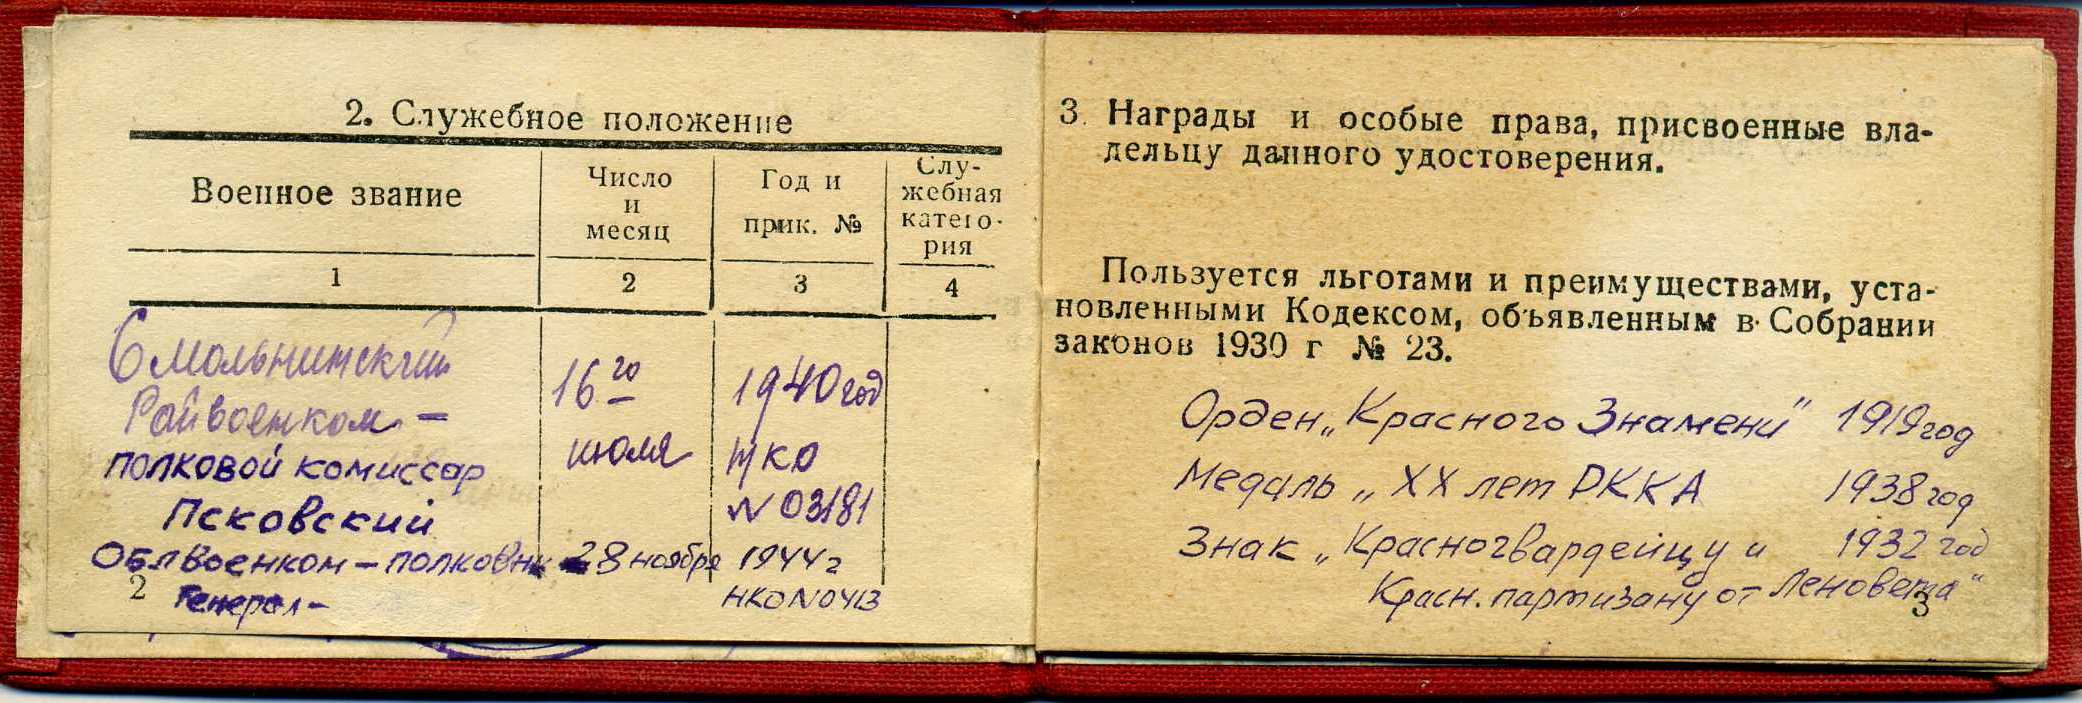 2. Служебное положение
Военное звание
Число
и
месяц
Год и
прик. №
Слу-
жебная
катего-
рия
1
2
3
4
Смольнинский
Райвоенком –
полковой комиссар
16го
июля
1940 год
НКО
N 03181
Псковский
Облвоенком – полковник 28 ноября 1944 г
Генерал –
НКО N 0413
2
3. Награды и особые права, присвоенные вла-
дельцу данного удостоверения.
Пользуется льготами и преимуществами, уста-
новленными Кодексом, объявленным в Собрании
законов 1930 г № 23.
Орден „Красного Знамени" 1919 год
Медаль „XX лет РККА 1938 год
Знак „Красногвардейцу и 1932 год
Красн. партизану от Леновета"
3